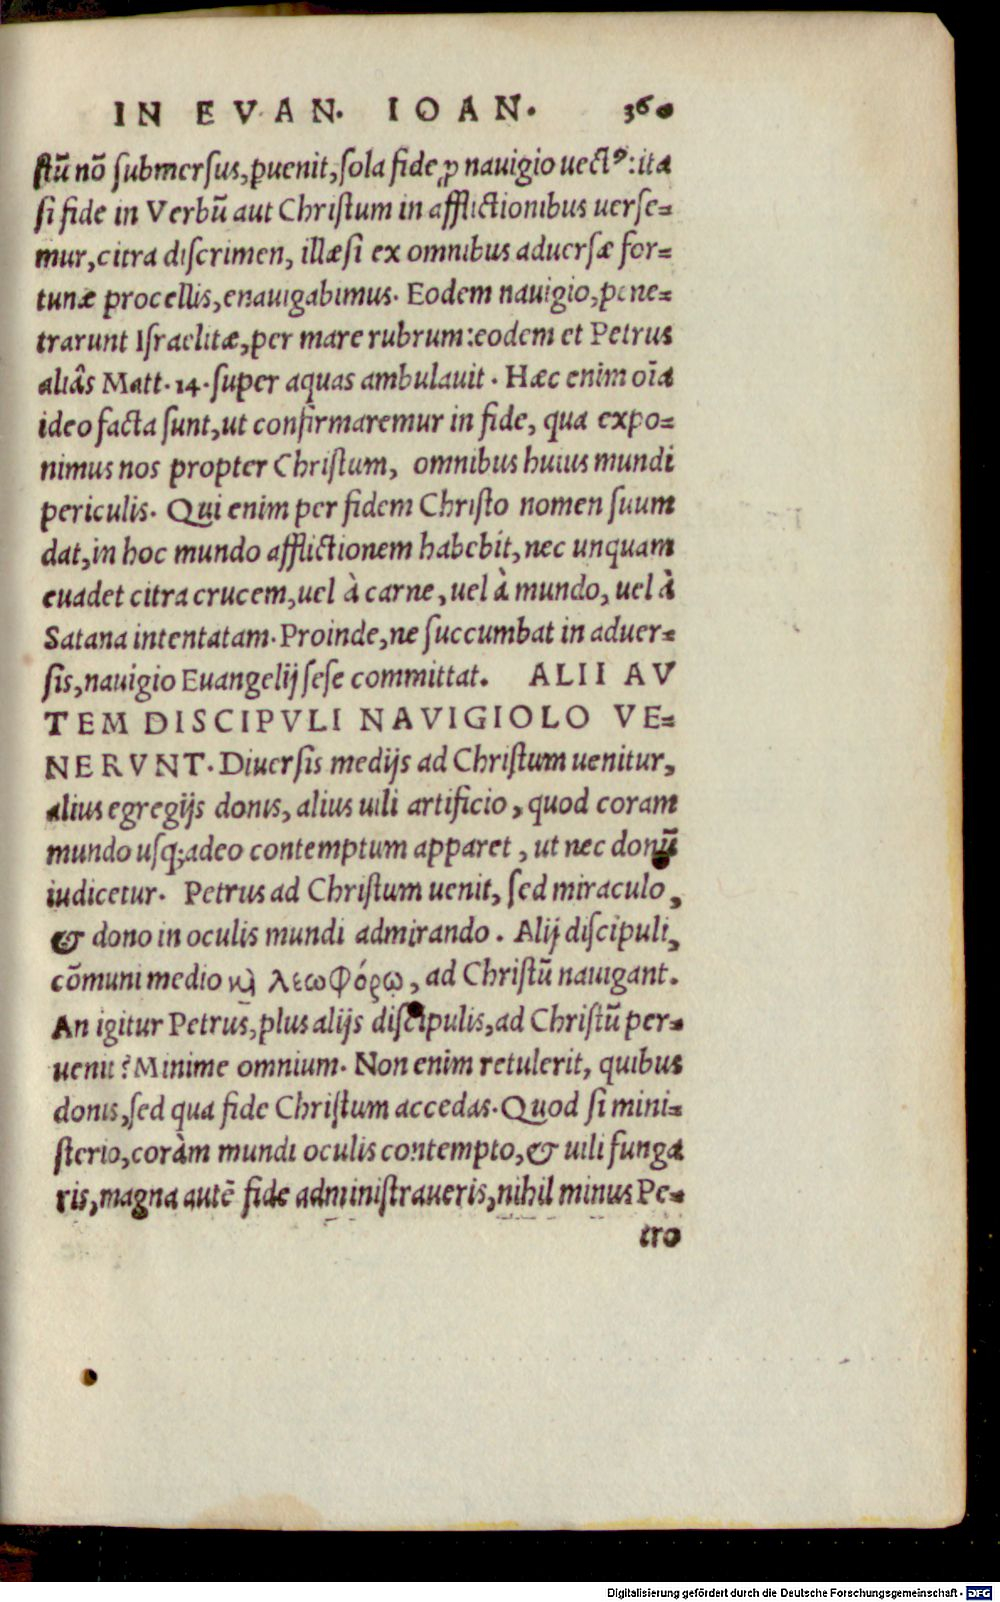 IN EVAN. IOAN. 360
ſtũ nõ ſubmerſus, ꝑuenit, ſola fide ꝓ nauigio uectꝰ: ita
ſi fide in Verbũ aut Chriſtum in afflictionibus uerſe=
mur, citra diſcrimen, illæſi ex omnibus aduerſæ for=
tunæ procellis, enauigabimus. Eodem nauigio, pene=
trarunt Iſraelitæ, per mare rubrum: eodem et Petrus
aliâs Matt. 14. ſuper aquas ambulauit. Hæc enim oĩa
ideo facta ſunt, ut confirmaremur in fide, qua expo=
nimus nos propter Chriſtum, omnibus huius mundi
periculis. Qui enim per fidem Chriſto nomen ſuum
dat, in hoc mundo afflictionem habebit, nec unquam
euadet citra crucem, uel à carne, uel à mundo, uel à
Satana intentatam. Proinde, ne ſuccumbat in aduer=
ſis, nauigio Euangelij ſeſe committat. ALII AV
TEM DISCIPVLI NAVIGIOLO VE=
NERVNT. Diuerſis medijs ad Chriſtum uenitur,
alius egregijs donis, alius uili artificio, quod coram
mundo uſq;adeo contemptum apparet, ut nec donũ
iudicetur. Petrus ad Chriſtum uenit, ſed miraculo,
& dono in oculis mundi admirando. Alij diſcipuli,
cõmuni medio ϗ λεωφόρω, ad Chriſtũ nauigant.
An igitur Petrus, plus alijs diſcipulis, ad Chriſtũ per=
uenit? Minime omnium. Non enim retulerit, quibus
donis, ſed qua fide Chriſtum accedas. Quod ſi mini=
ſterio, coràm mundi oculis contempto, & uili funga
ris, magna autẽ fide adminiſtraueris, nihil minus Pe=
tro
Digitalisierung gefördert durch die Deutsche Forschungsgemeinschaft - DFG